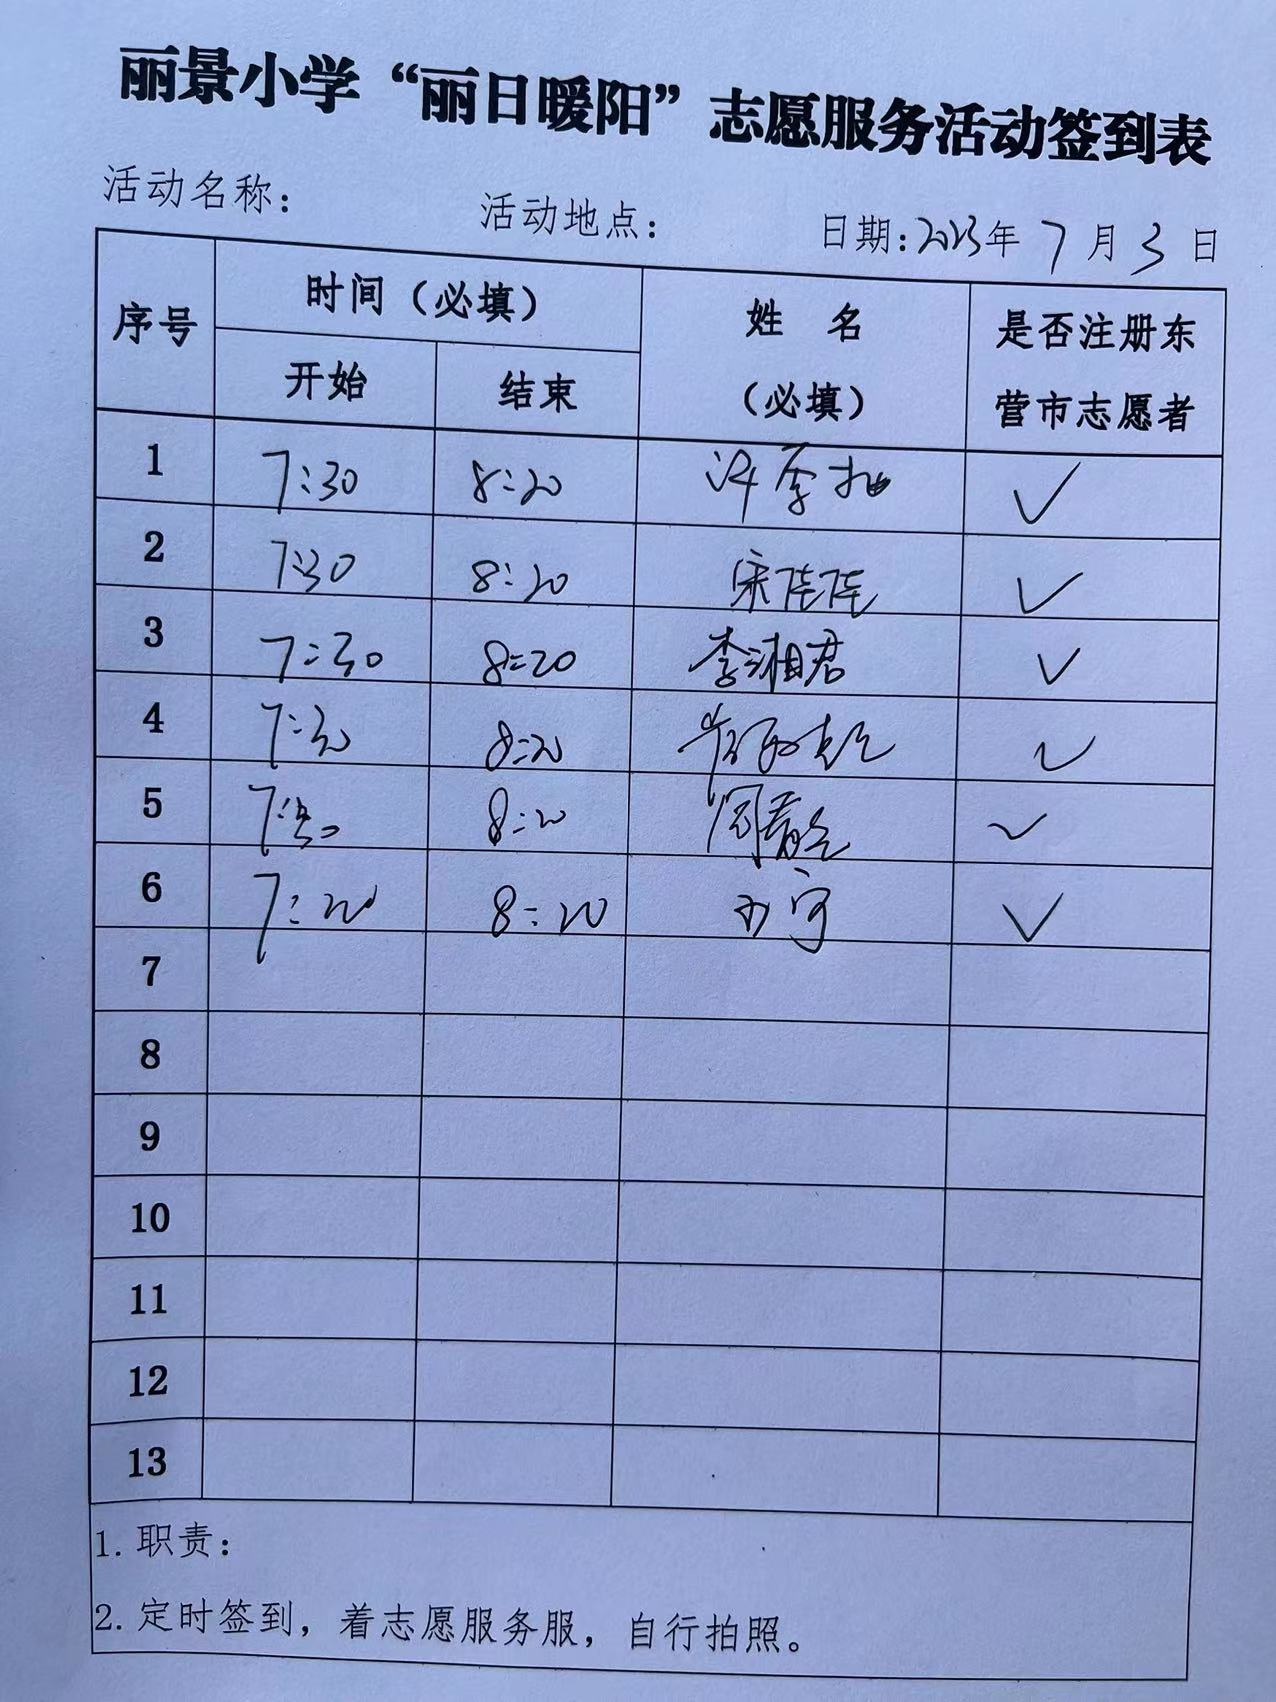 丽景小学“丽日暖阳”志愿服务活动签到表
活动名称： 活动地点： 日期：2023年 7月 3日
序号 时间（必填） 姓 名（必填） 是否注册东营市志愿者
开始 结束
1 7:30 8:20 ✓
2 7:30 8:20 宋佳佳 ✓
3 7:30 8:20 李湘君 ✓
4 7:30 8:20 ✓
5 7:30 8:20 ✓
6 7:20 8:20 ✓
7
8
9
10
11
12
13
1. 职责：
2. 定时签到，着志愿服务服，自行拍照。